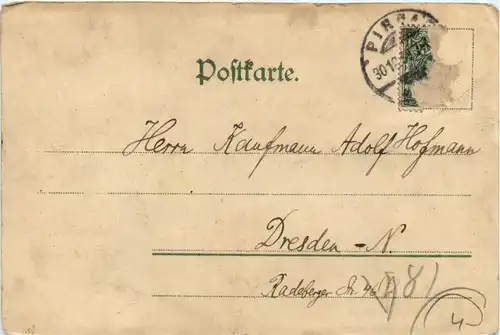 PIRNA
30.12.
Postkarte.
Herrn Kaufmann Adolf Hofmann
Dresden - N.
Radeberger Str. 46
4